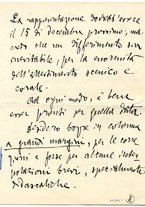 La rappresentazione dovrebb'essere
il 15 di decembre prossimo, ma
credo che un differimento sia
inevitabile, per la enormità
dell'allestimento scenico e
corale.
Ad ogni modo, è bene
esser pronti per quella data.
Desidero bozze in colonna
a grandi margini, per le corre-
zioni e forse per alcune inter-
polazioni brevi, specialmente
didascaliche.